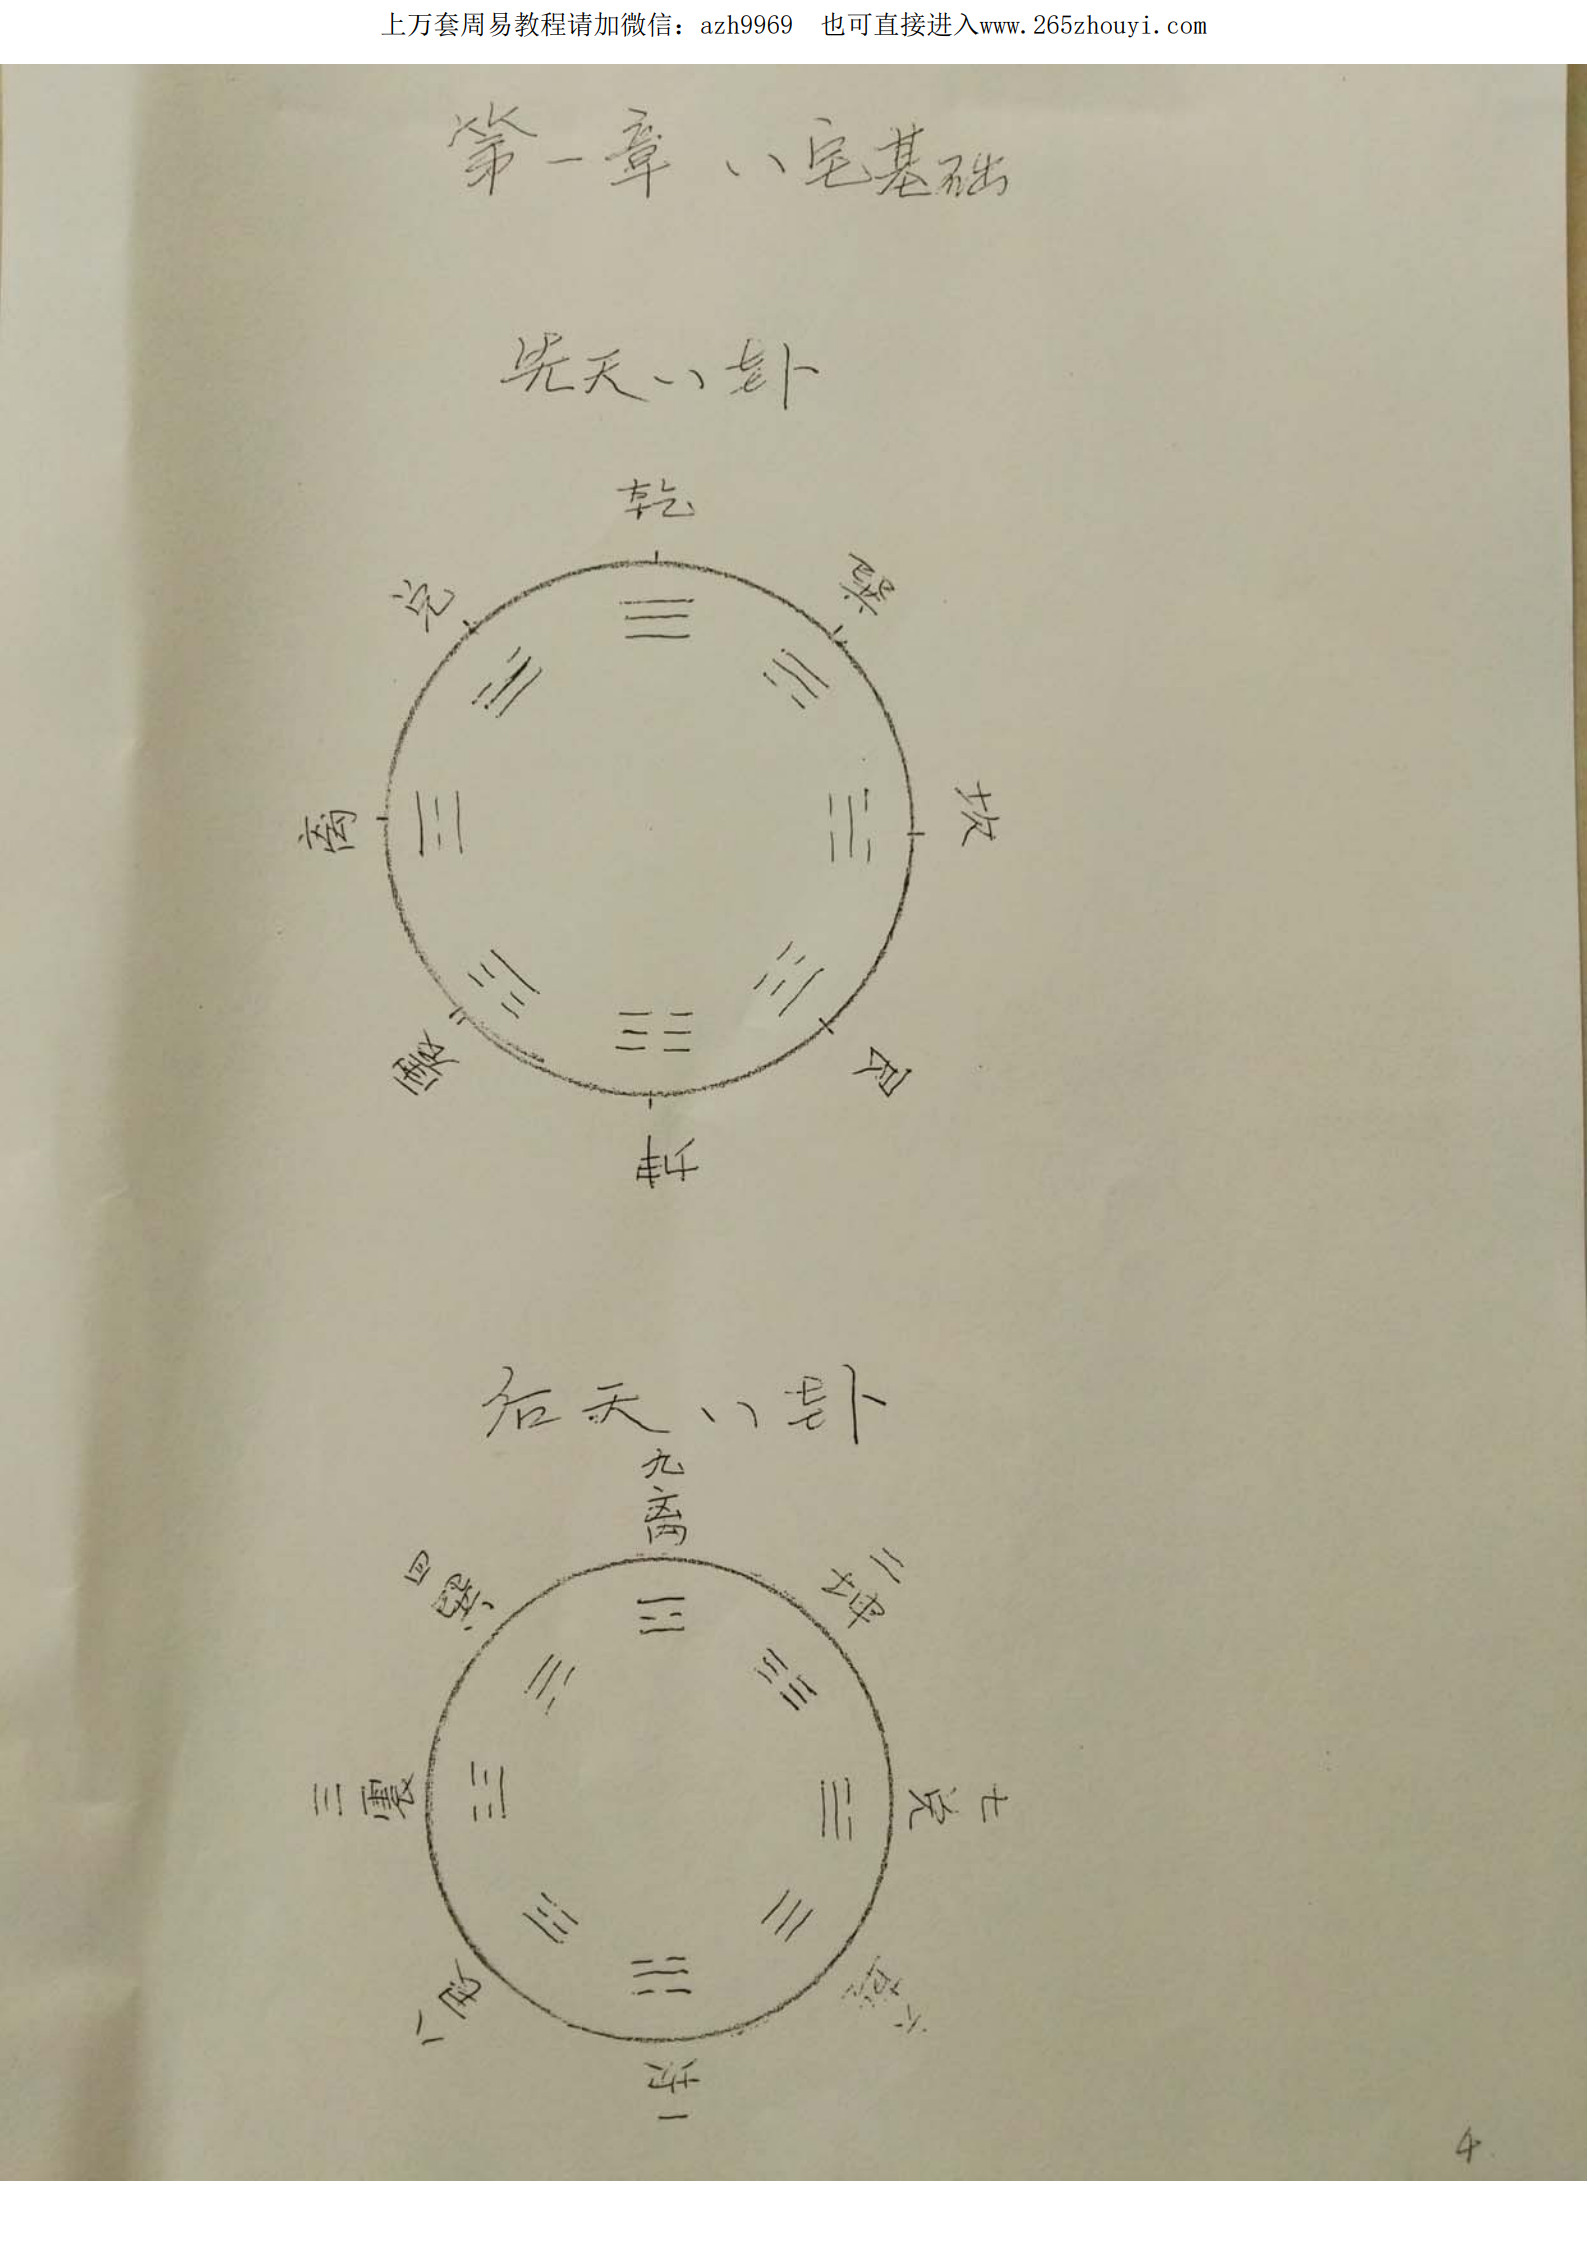 上万套周易教程请加微信：azh9969 也可直接进入www.265zhouyi.com
第一章 八宅基础
先天八卦
乾
兑
巽
离
坎
震
艮
坤
后天八卦
九
离
四巽
二坤
三震
七兑
八艮
六乾
坎
一
4